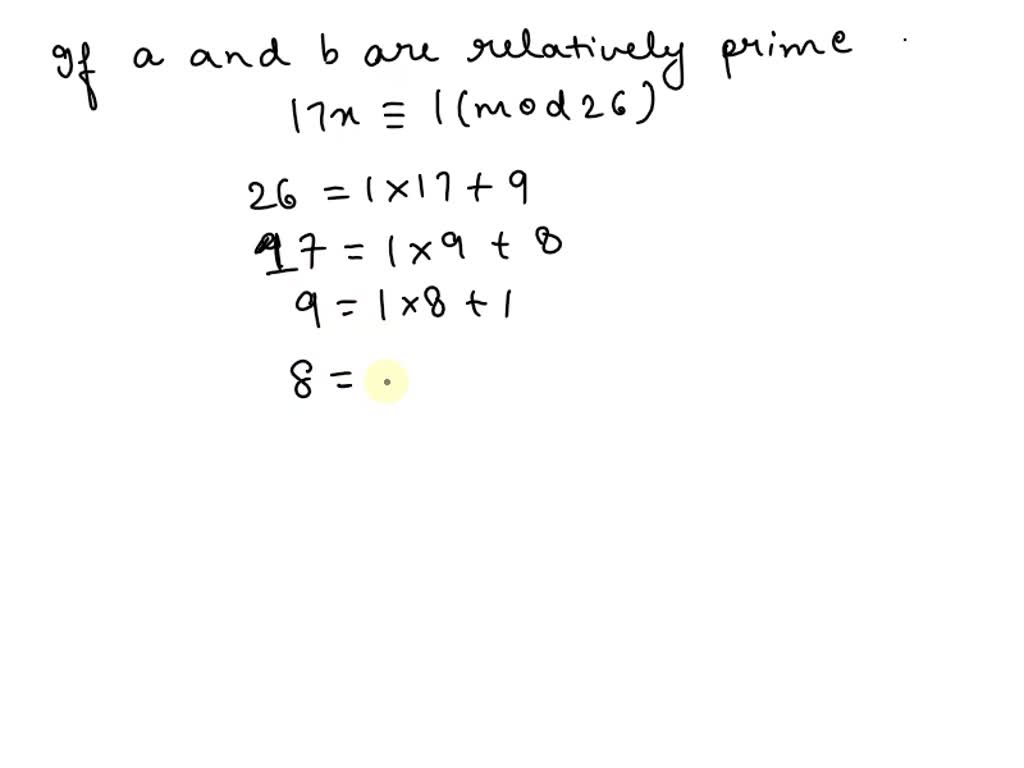 If a and b are relatively prime .
17x ≡ 1 (mod 26)
26 = 1 × 17 + 9
17 = 1 × 9 + 8
9 = 1 × 8 + 1
8 =